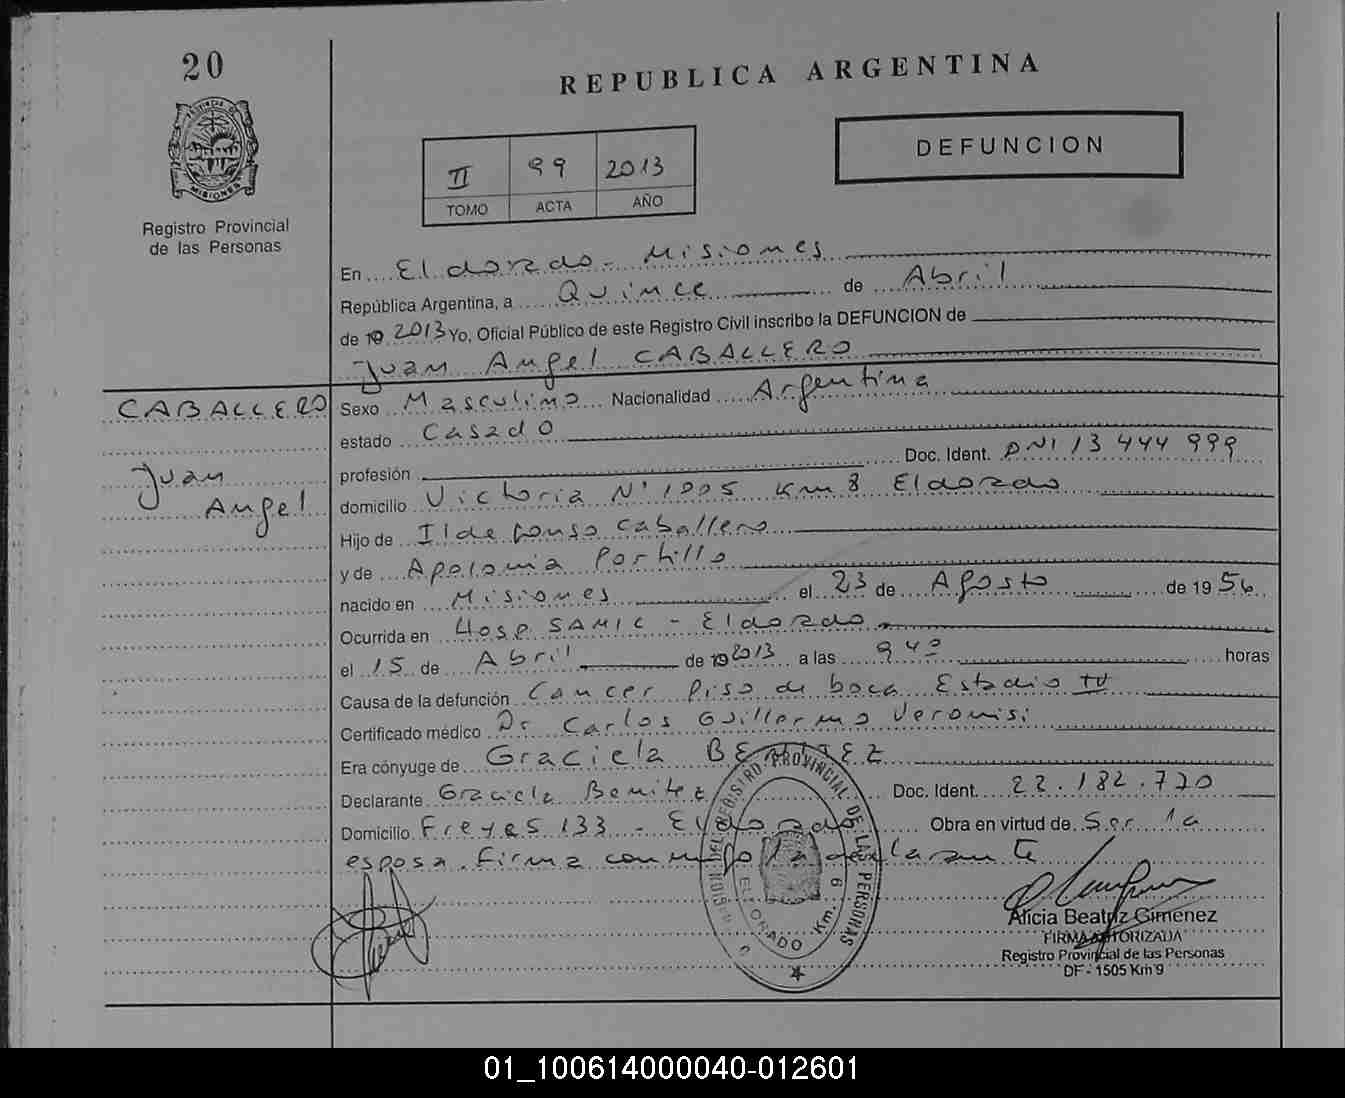 20
REPUBLICA ARGENTINA
DEFUNCION
II 99 2013
TOMO ACTA AÑO
PROVINCIA DE MISIONES
Registro Provincial
de las Personas
En Eldorado - Misiones
República Argentina, a Quince de Abril
de 19 2013 Yo, Oficial Público de este Registro Civil inscribo la DEFUNCION de
Juan Angel CABALLERO
CABALLERO
Juan
Angel
Sexo Masculino Nacionalidad Argentina
estado Casado
profesión Doc. Ident. DNI 13 444 999
domicilio Victoria N° 1995 Km 8 Eldorado
Hijo de Ildefonso Caballero
y de Apolonia Portillo
nacido en Misiones el 23 de Agosto de 1956
Ocurrida en Hosp SAMIC - Eldorado
el 15 de Abril de 19 2013 a las 9 40 horas
Causa de la defunción Cancer Piso de boca Estadio IV
Certificado médico Dr Carlos Guillermo Veronisi
Era cónyuge de Graciela BENITEZ
Declarante Graciela Benitez Doc. Ident. 22.182.720
Domicilio Freyes 133 - Eldorado Obra en virtud de Ser la
esposa. Firma conmigo la declarante
REGISTRO PROVINCIAL DE LAS PERSONAS
ELDORADO Km. 9
Alicia Beatriz Gimenez
FIRMA AUTORIZADA
Registro Provincial de las Personas
DF - 1505 Km 9
01_100614000040-012601